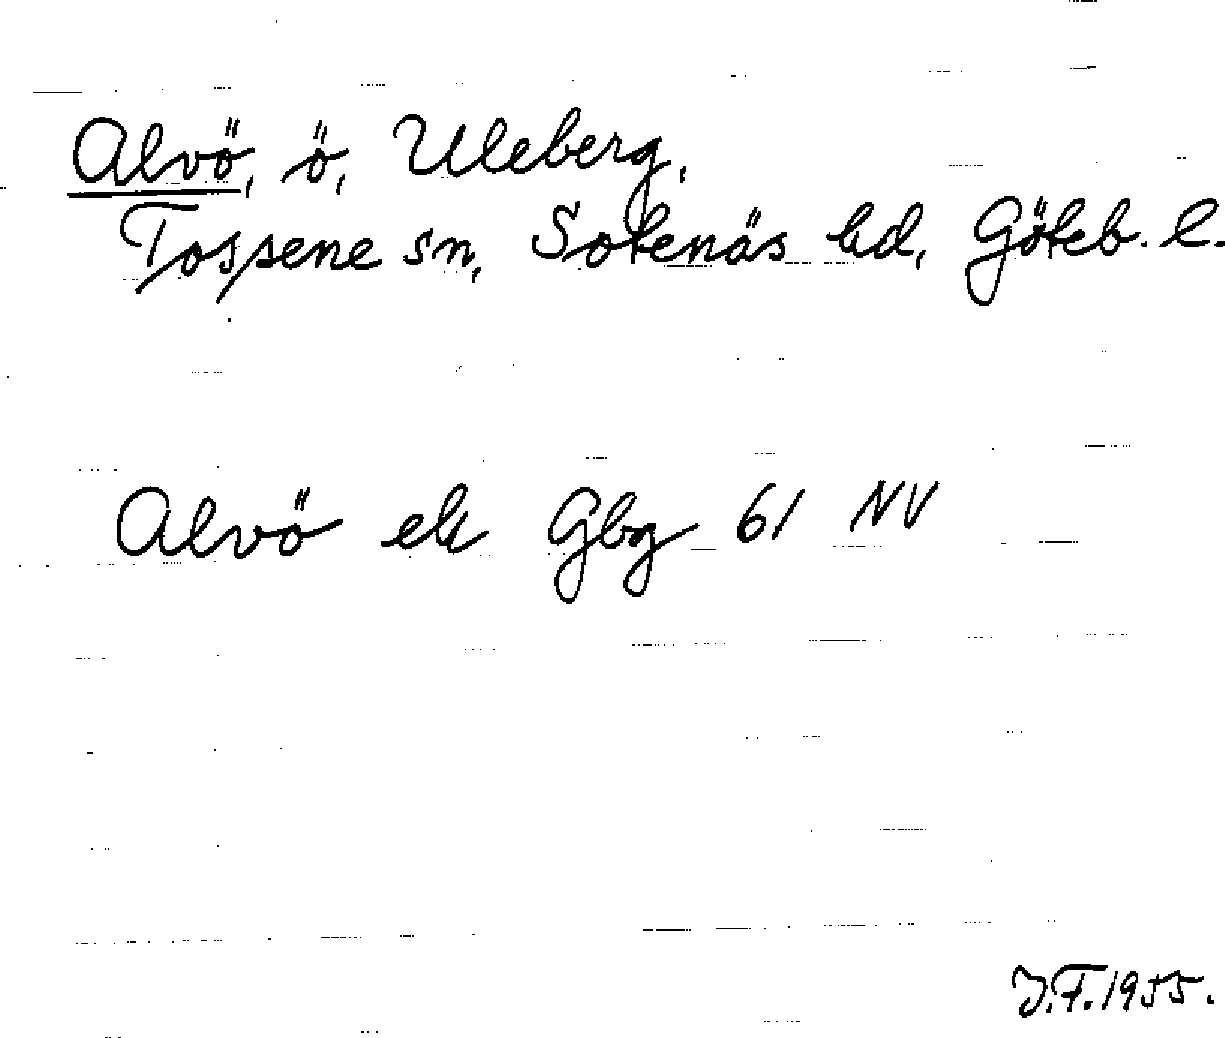 Alvö, ö, Uleberg,
Tossene sn, Sotenäs hd, Göteb. l.
Alvö ek Gbg 61 NV
J.F. 1955.